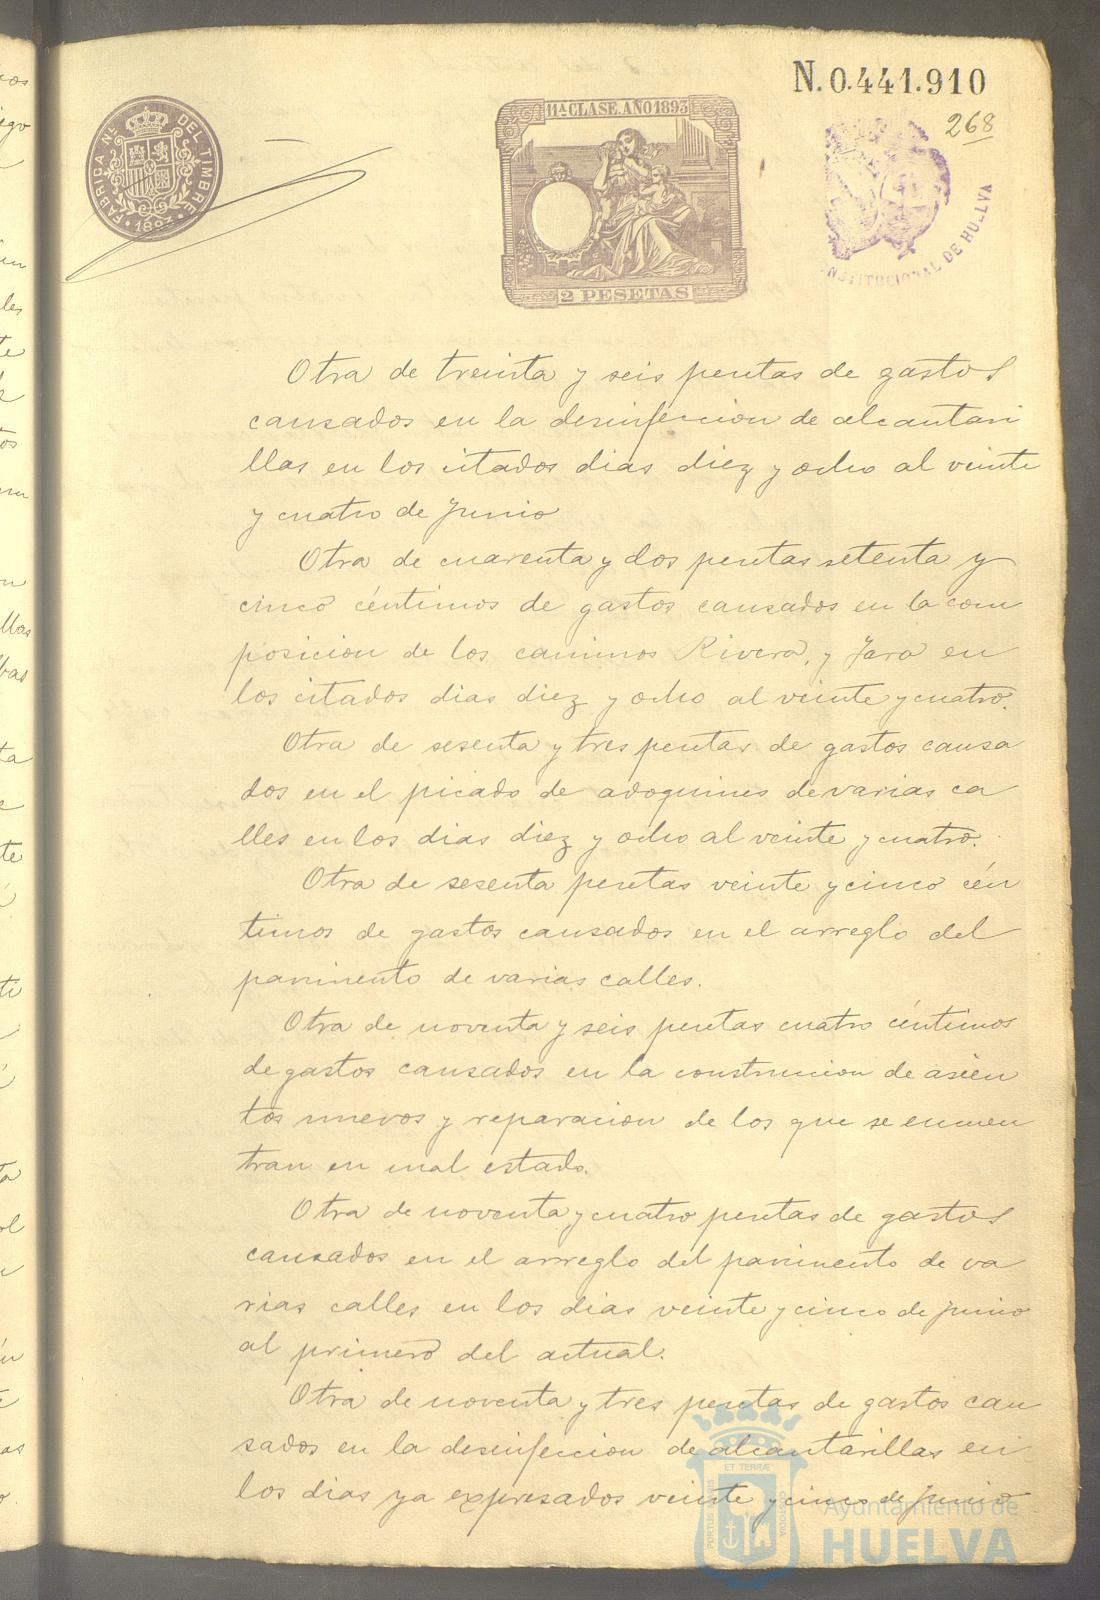 N.0.441.910
268
11ª CLASE. AÑO 1893
FABRICA NL. DEL TIMBRE
1893
2 PESETAS
NSTITUCIONAL DE HUELVA
Otra de treinta y seis pesetas de gastos
causados en la desinfeccion de alcantari
llas en los citados dias diez y ocho al veinte
y cuatro de Junio
Otra de cuarenta y dos pesetas setenta y
cinco céntimos de gastos causados en la com
posicion de los caminos Rivera, y Jara en
los citados dias diez y ocho al veinte y cuatro.
Otra de sesenta y tres pesetas de gastos causa
dos en el picado de adoquines de varias ca
lles en los dias diez y ocho al veinte y cuatro.
Otra de sesenta pesetas veinte y cinco cén
timos de gastos causados en el arreglo del
pavimento de varias calles.
Otra de noventa y seis pesetas cuatro céntimos
de gastos causados en la construccion de asien
tos nuevos y reparacion de los que se encuen
tran en mal estado.
Otra de noventa y cuatro pesetas de gastos
causados en el arreglo del pavimento de va
rias calles en los dias veinte y cinco de Junio
al primero del actual.
Otra de noventa y tres pesetas de gastos cau
sados en la desinfeccion de alcantarillas en
los dias ya expresados veinte y cinco de Junio
PORTUS MARIS ET TERRÆ CUSTODIA
Ayuntamiento de
HUELVA